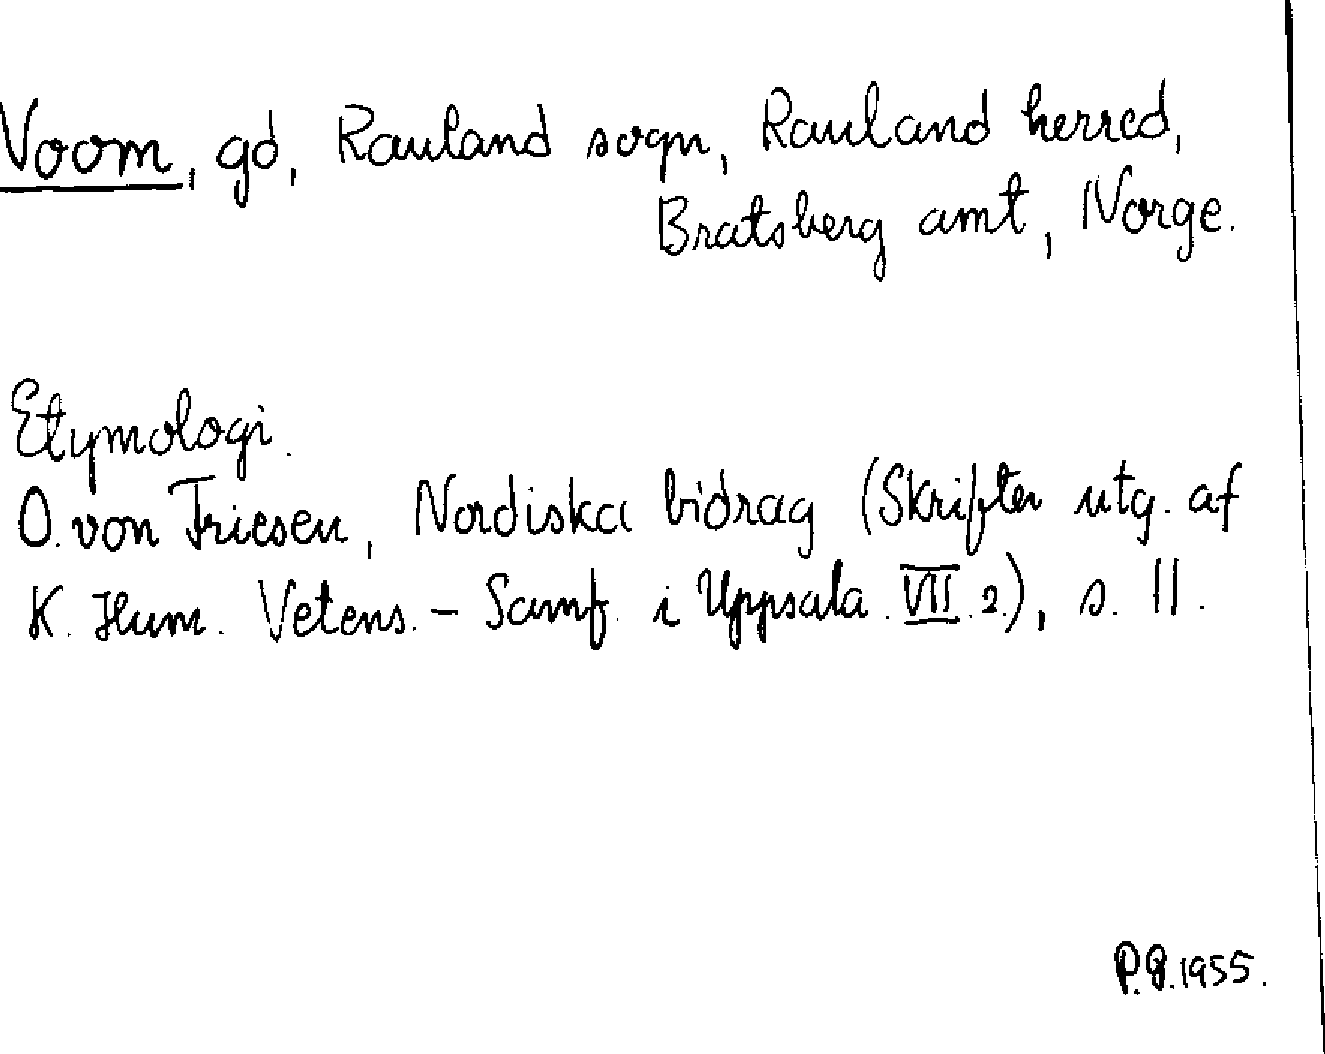 Voom, gd, Rauland sogn, Rauland herred,
Bratsberg amt, Norge.
Etymologi.
O. von Friesen, Nordiska bidrag (Skrifter utg. af
K. Hum. Vetens.- Samf. i Uppsala. VII. 2.), s. 11.
P.G. 1955.